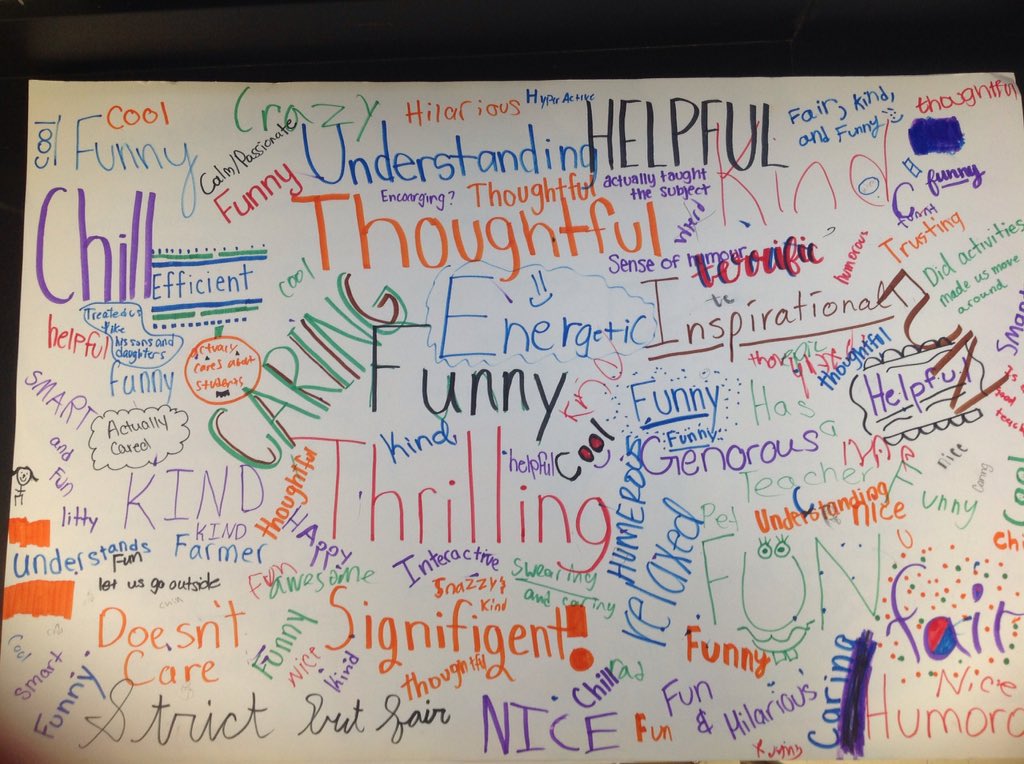 cool
cool
Funny
Crazy
Calm/Passionate
Funny
Hilarious
Hyper Active
Understanding
HELPFUL
Fair, kind,
and Funny
thoughtful
Kind
funny
funny
Encoarging?
Thoughtful
actually taught
the subject
Chill
Thoughtful
Sense of humour
terrific
humorous
Trusting
Did activities
made us move
around
Efficient
cool
Treated us
like
his sons and
daughters
helpful
actualy
cares about
students
CARIING
Energetic
Inspirational
Funny
thoughtful
Helpful
funny
SMART
and
Fun
Actually
Cared
Kind
Kind
Funny
Funny
Has
a
helpful
Cool
Genorous
nice
Caring
Thrilling
KIND
KIND
thoughtful
HAPPY
litty
HUMEROUS
relaxed
Teacher
Pet
Understanding
nice
Funny
understands
Fun
Farmer
let us go outside
Fun
awesome
Interactive
Snazzy
Kind
Swearing
and caring
FUN
fair
Doesn't
Care
Funny
Signifigent!
nice
kind
thoughtful
Funny
Cool
smart
Funny
Strict but fair
NICE
Chill
rad
Fun
Fun
& Hilarious
Caring
Nice